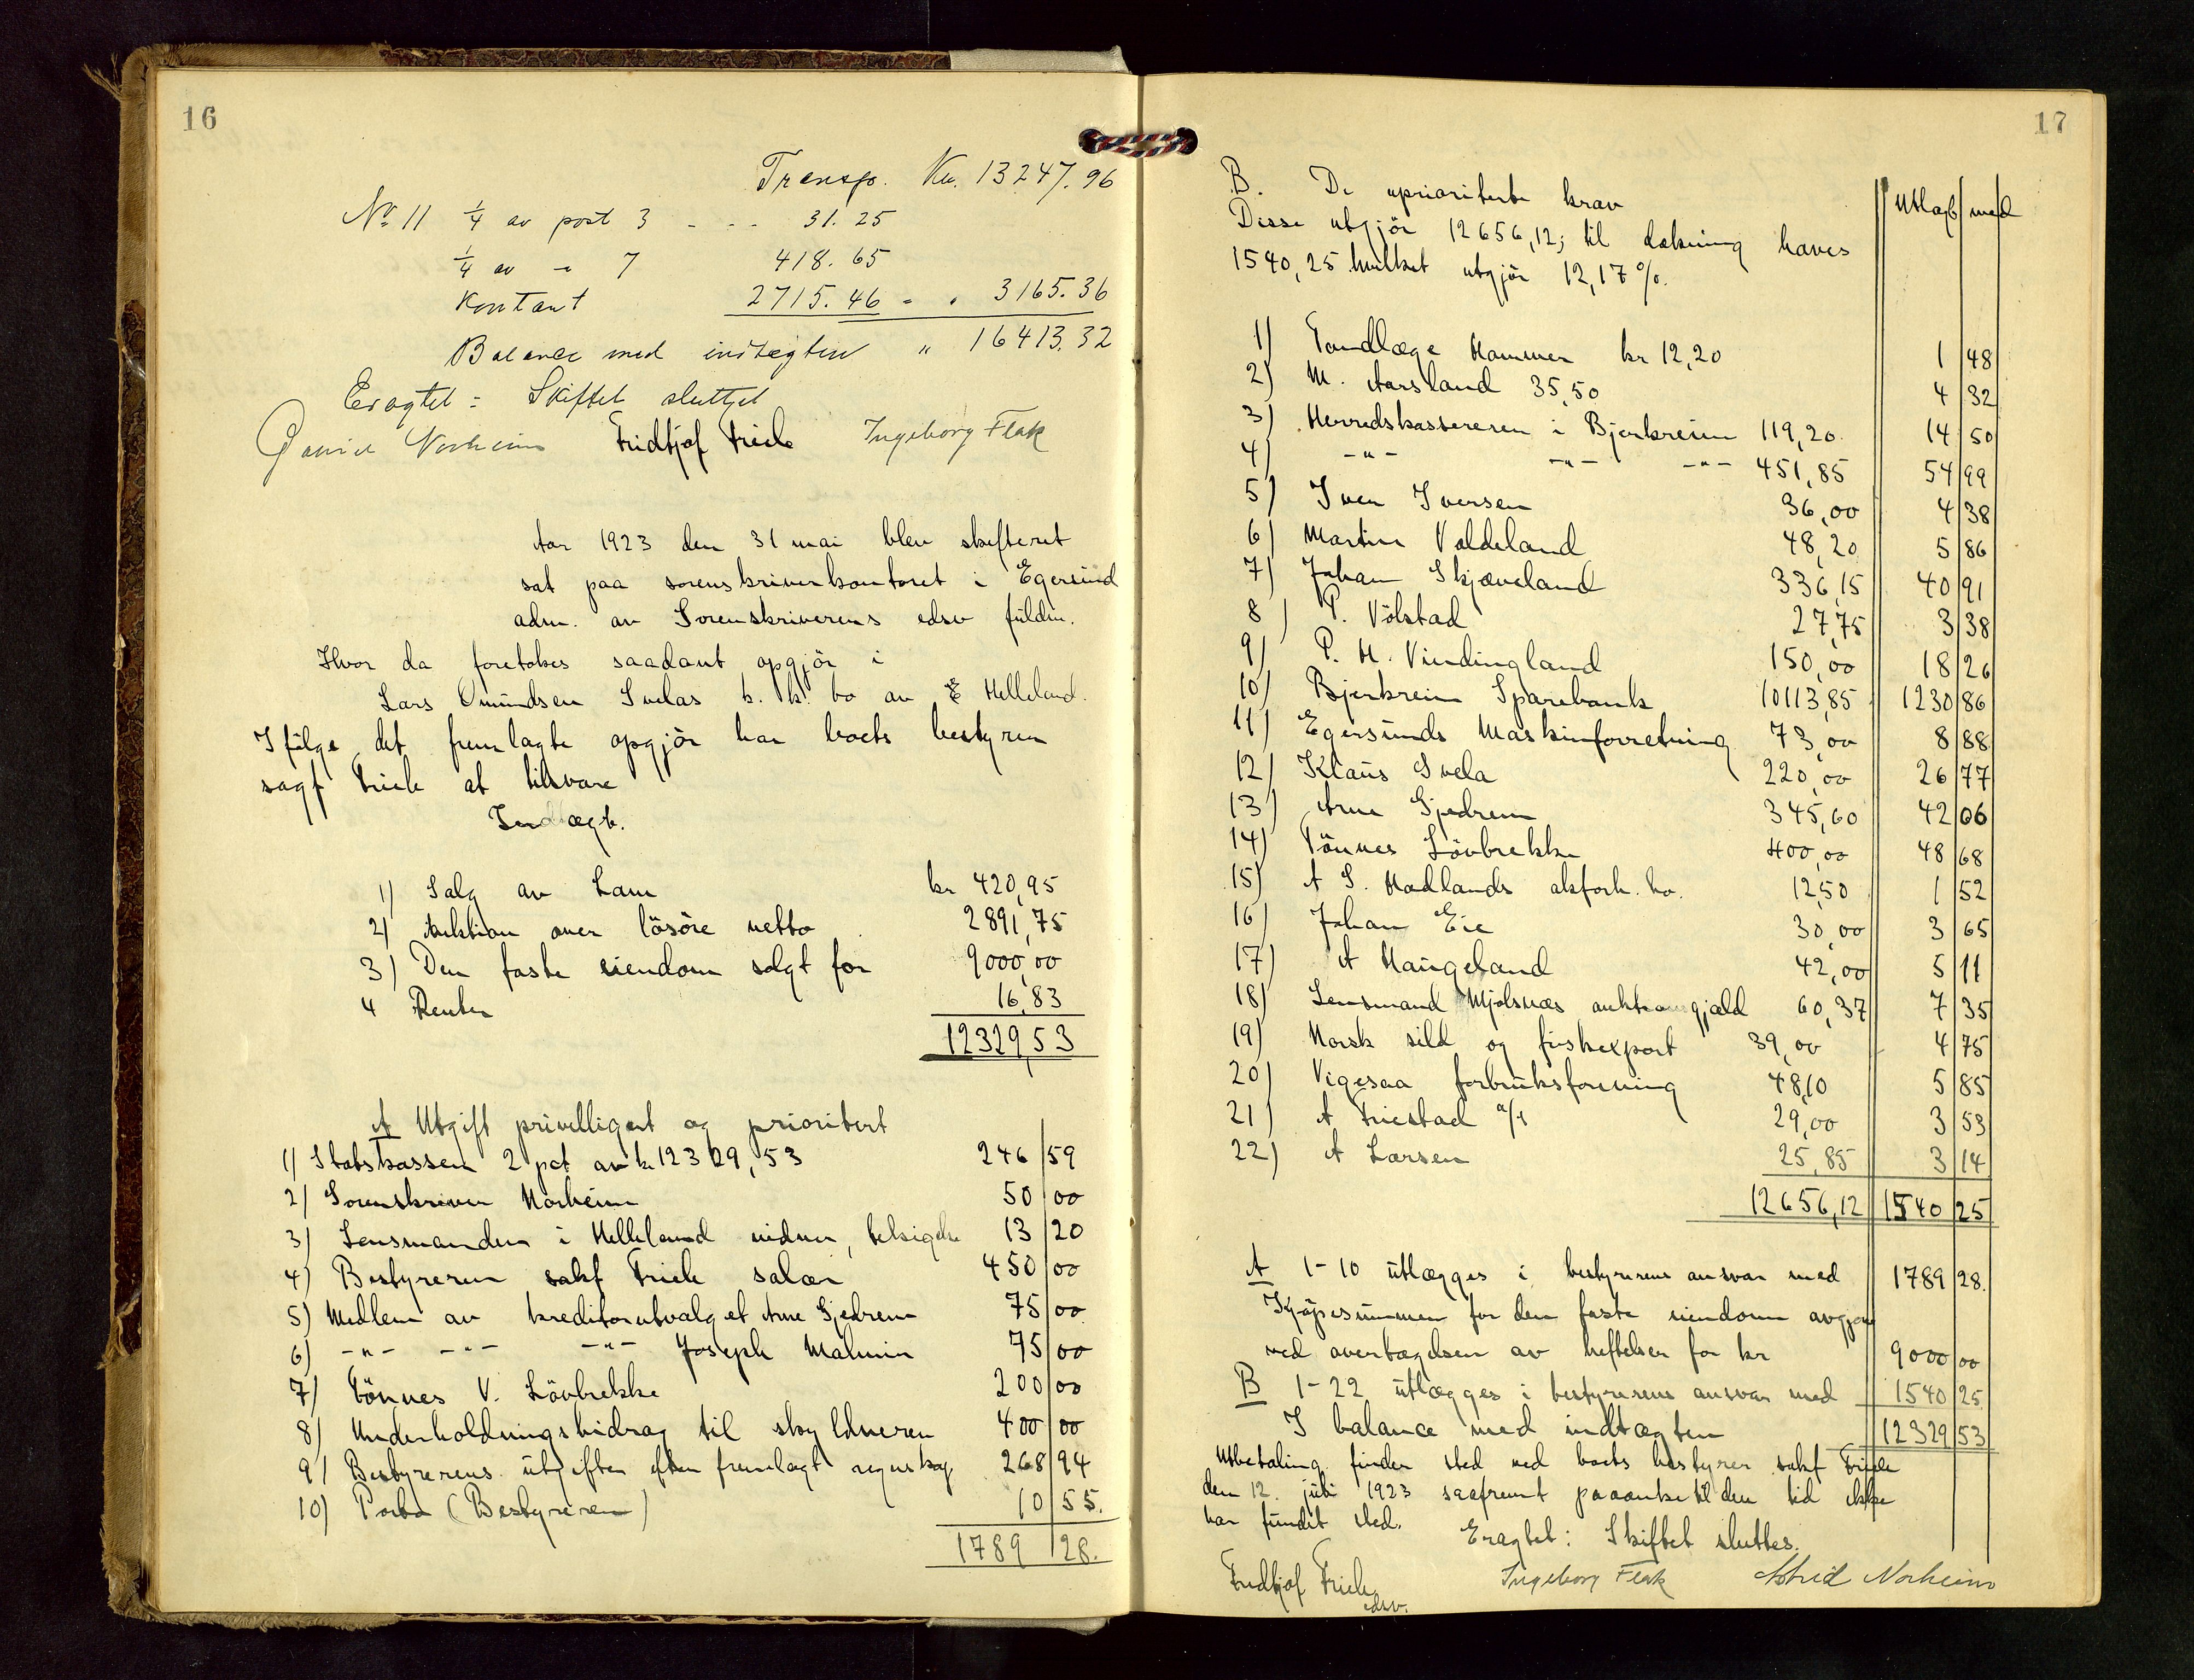 16
Transp. Kr. 13247.96
No 11 1/4 av post 3 - - - 31.25
1/4 av - " 7 418.65
Kontant 2715.46 - . 3165.36
Balance med indtægten " 16413.32
Eragtet: Skiftet sluttet
Norheim Fridtjof Friele Ingeborg Flak
Aar 1923 den 31 mai blev skifteret
sat paa sorenskriverkontoret i Egersund
adm. av Sorenskriverens edsv fuldm.
Hvor da foretokes saadant opgjør i
Lars Omundsen Svelas k. k. bo av E Helleland.
Ifølge det fremlagte opgjør har boets bestyrer
sagf Friele at tilsvare
Indtægt.
1) Salg av Lam kr 420,95
2) Auktion over løsøre netto 2891,75
3) Den faste eiendom solgt for 9000,00
4 Renter 16,83
12329,53
A Utgift privilligert og prioritert
1) Statskassen 2 pct av kr 12329,53 246 59
2) Sorenskriver Norheim 50 00
3) Lensmanden i Helleland vidner, 13 20
4) Bestyreren sakf Friele salær 450 00
5) Medlem av kreditorutvalget Arne Gjedrem 75 00
6) -"- -"- -"- Joseph Malmin 75 00
7) Tönnes V. Lövbrekke 200 00
8) Underholdningsbidrag til skyldneren 400 00
9) Bestyrerens utgifter efter fremlagt regnskap 268 94
10) Porto (Bestyreren) 10 55.
1789 28.
17
B. De uprioriterte krav Utlagt med
Disse utgjör 12656,12; til dækning haves
1540,25 hvilket utgjör 12,17%.
1) Tandlæge Hammer kr 12,20 1 48
2) M. Aarsland 35,50 4 32
3) Herredskassereren i Bjerkreim 119,20 14 50
4) -"- -"- -"- 451,85 54 99
5) Iver Iversen 36,00 4 38
6) Martin Valdeland 48,20 5 86
7) Johan Skjæveland 336,15 40 91
8) P. Völstad 27,75 3 38
9) P. H. Vindingland 150,00 18 26
10) Bjerkreim Sparebank 10113,85 1230 86
11) Egersunds Maskinforretning 73,00 8 88
12) Klaus Svela 220,00 26 77
13) Arne Gjedrem 345,60 42 06
14) Tönnes Lövbrekke 400,00 48 68
15) A S. Hadlands akkord. bo. 12,50 1 52
16) Johan Eie 30,00 3 65
17) A Haugeland 42,00 5 11
18) Lensmand Mjølsnæs auktionsgjæld 60,37 7 35
19) Norsk sild og fiskexport 39,00 4 75
20) Vigesaa forbruksforening 48,10 5 85
21) A Friestad a/s 29,00 3 53
22) A Larsen 25,85 3 14
12656,12 1540 25
A 1-10 utlægges i bestyrerens ansvar med 1789 28.
Kjöpesummen for den faste eiendom avgjort
ved overtagelsen av heftelser for kr 9000 00
B 1-22 utlægges i bestyrerens ansvar med 1540 25
I balance med indtægten 12329 53
Utbetaling finder sted ved boets bestyrer sakf Friele
den 12. juli 1923 saafremt paaanke til den tid ikke
har fundit sted. Eragtet: Skiftet sluttes.
Fridtjof Friele Ingeborg Flak Astrid Norheim
edsv.